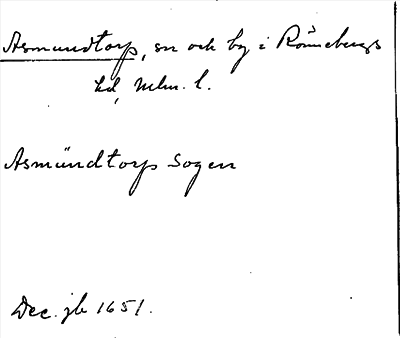 Asmundtorp, sn och by i Rönnebergs
hd, Mlm. l.
Asmündtorp Sogen
Dec. jb 1651.